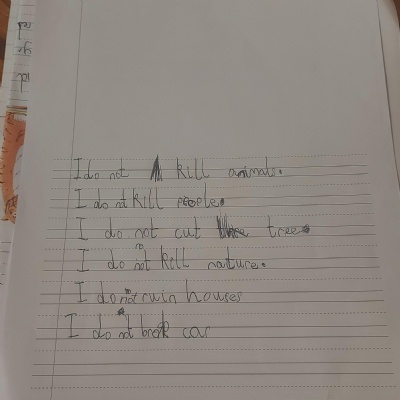 I do not kill animals.
I do not kill people.
I do not cut tree
I do not kill nature.
I do not ruin houses
I do not brok car